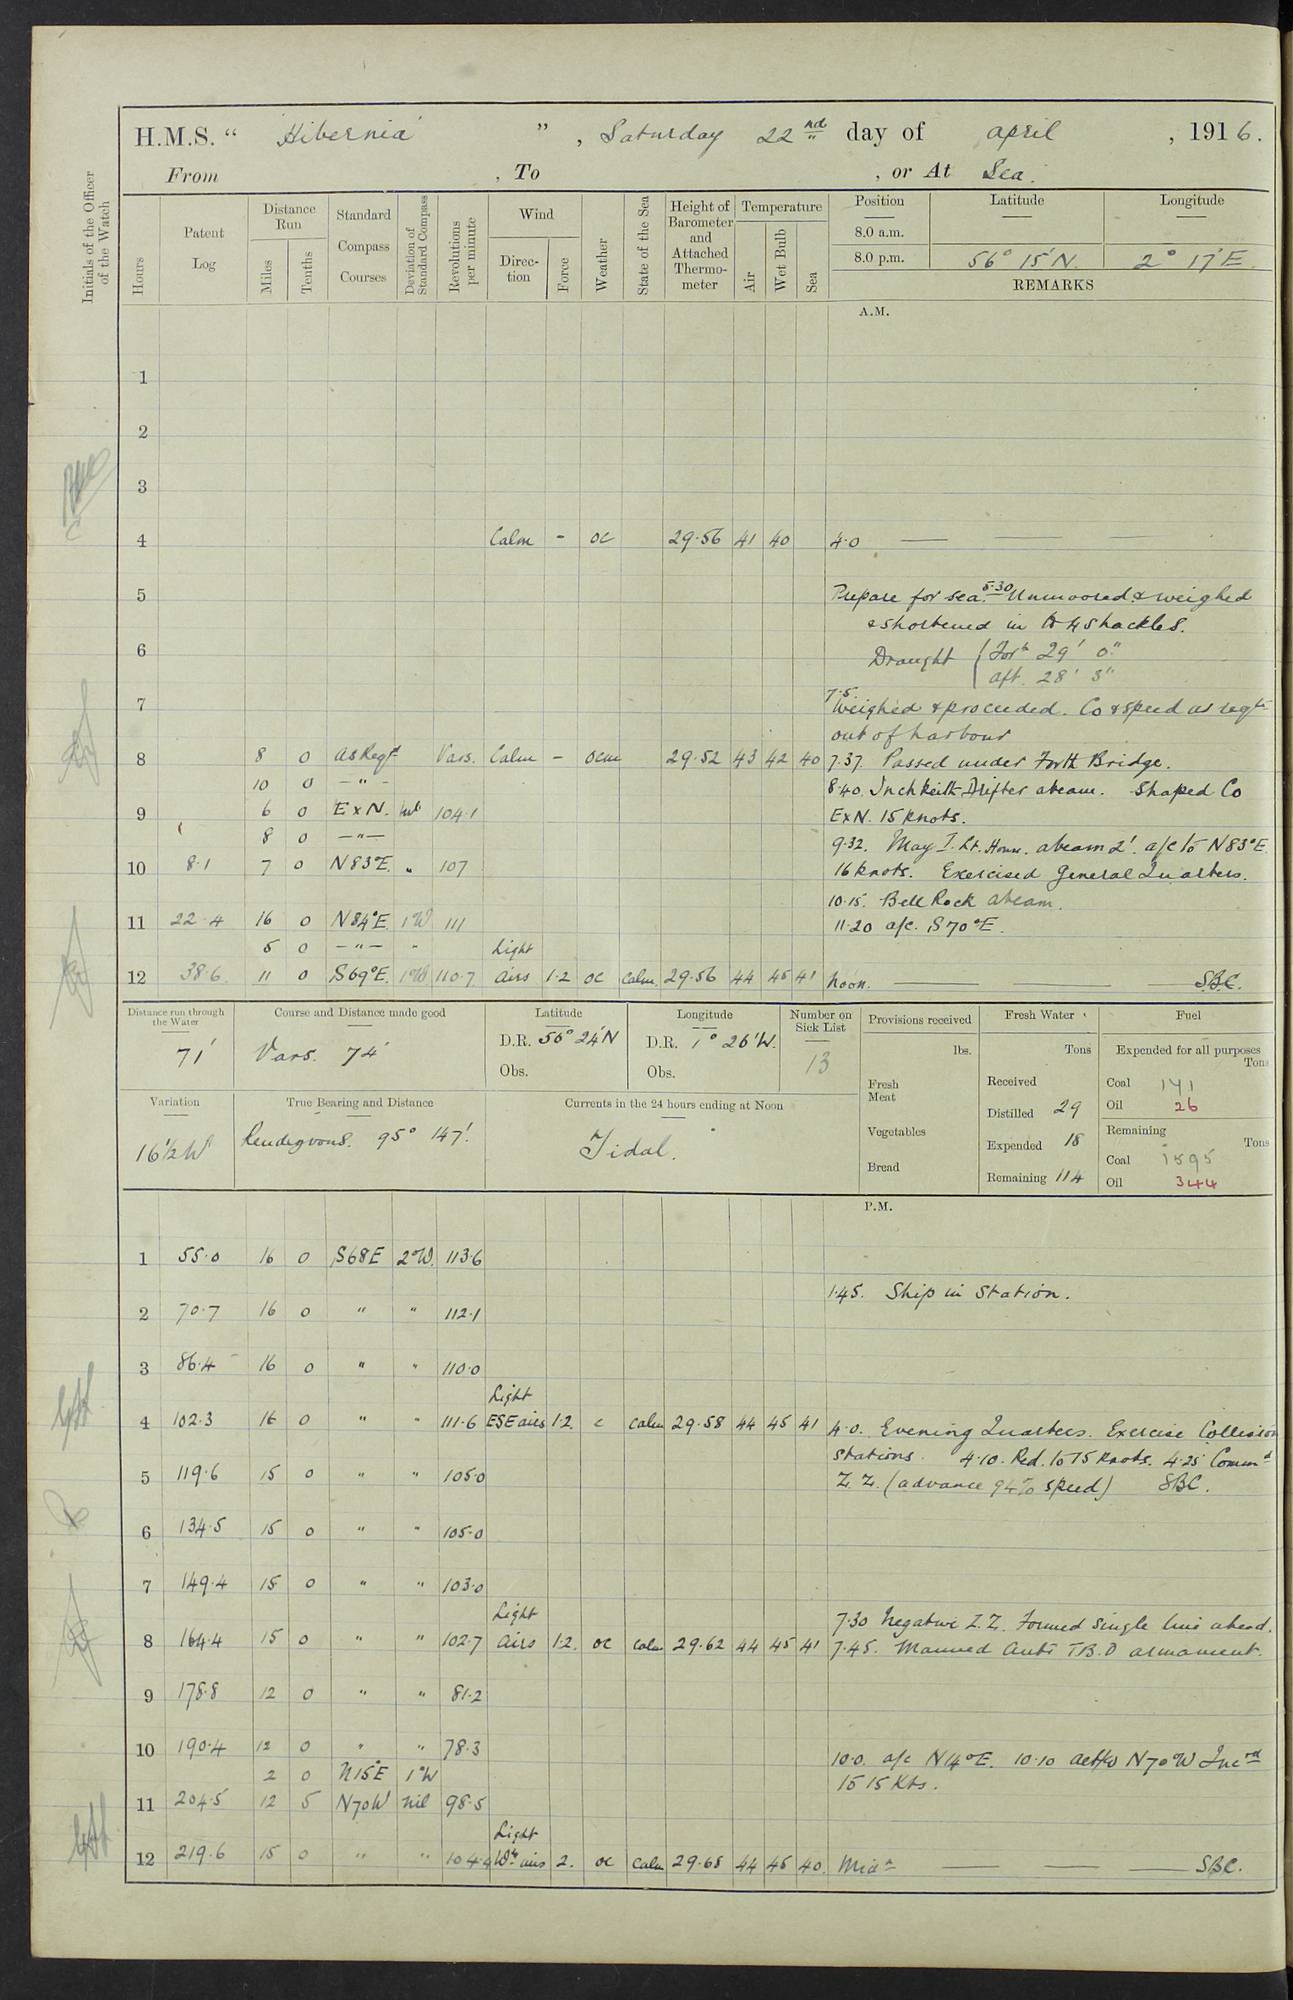 H.M.S. " Hibernia ", Saturday 22nd day of April, 1916.
From , To , or At Sea.
Initials of the Officer of the Watch
Hours
Patent Log
Distance Run
Miles
Tenths
Standard Compass Courses
Deviation of Standard Compass
Revolutions per minute
Wind
Direction
Force
Weather
State of the Sea
Height of Barometer and Attached Thermometer
Temperature
Air
Wet Bulb
Sea
Position Latitude Longitude
8.0 a.m.
8.0 p.m. 56° 15'N. 2° 17'E.
REMARKS
A.M.
1
2
3
4 Calm - oc 29.56 41 40 4.0
5 Prepare for sea. 5.30 Unmoored & weighed
& shortened in to 4 shackles.
6 Draught Ford 29' 0"
aft. 28' 3"
7 7.5. Weighed & proceeded. Co & speed as reqte
out of harbour
8 8 0 as Reqt Vars. Calm - ocm 29.52 43 42 40 7.37. Passed under Forth Bridge.
10 0 -"- 8.40. Inchkeith Drifter abeam. Shaped Co
9 6 0 ExN. nil 104.1 ExN. 15 knots.
8 0 -"- 9.32. May I. Lt. House. abeam 2'. a/c to N83°E.
10 8.1 7 0 N83°E. " 107 16 knots. Exercised General Quarters.
10.15. Bell Rock abeam.
11 22.4 16 0 N84°E. 1°W 111 11.20 a/c. S70°E.
5 0 -"- " Light
12 38.6 11 0 S69°E. 1°W 110.7 airs 1.2 oc calm. 29.56 44 45 41 Noon. S.B.C.
Distance run through the Water
71'
Course and Distance made good
Vars. 74'
Latitude
D.R. 56° 24'N
Obs.
Longitude
D.R. 1° 26'W.
Obs.
Number on Sick List
13
Provisions received
lbs.
Fresh Meat
Vegetables
Bread
Fresh Water
Tons
Received
Distilled 29
Expended 18
Remaining 114
Fuel
Expended for all purposes
Tons
Coal 141
Oil 26
Remaining
Tons
Coal 1595
Oil 344
Variation
16½W
True Bearing and Distance
Rendezvous. 95° 147'.
Currents in the 24 hours ending at Noon
Tidal.
P.M.
1 55.0 16 0 S68E 2°W. 113.6
1.45. Ship in Station.
2 70.7 16 0 " " 112.1
3 86.4 16 0 " " 110.0
Light
4 102.3 16 0 " " 111.6 ESE airs 1.2. c calm 29.58 44 45 41 4.0. Evening Quarters. Exercise Collision
stations. 4.10. Red. to 15 knots. 4.25 Commd
5 119.6 15 0 " " 105.0 Z.Z. (advance 94% speed) SBC.
6 134.5 15 0 " " 105.0
7 149.4 15 0 " " 103.0
Light 7.30 Negative Z.Z. Formed single line ahead.
8 164.4 15 0 " " 102.7 airs 1.2. oc calm 29.62 44 45 41 7.45. Manned anti T.B.D armament.
9 178.8 12 0 " " 81.2
10 190.4 12 0 " " 78.3
2 0 N15°E 1°W 10.0. a/c N14°E. 10.10 a/c to N70°W Incrd
11 204.5 12 5 N70W nil 98.5 to 15 Kts.
Light
12 219.6 15 0 " " 104.4 Wly airs 2. oc calm 29.68 44 45 40. Midt SBC.